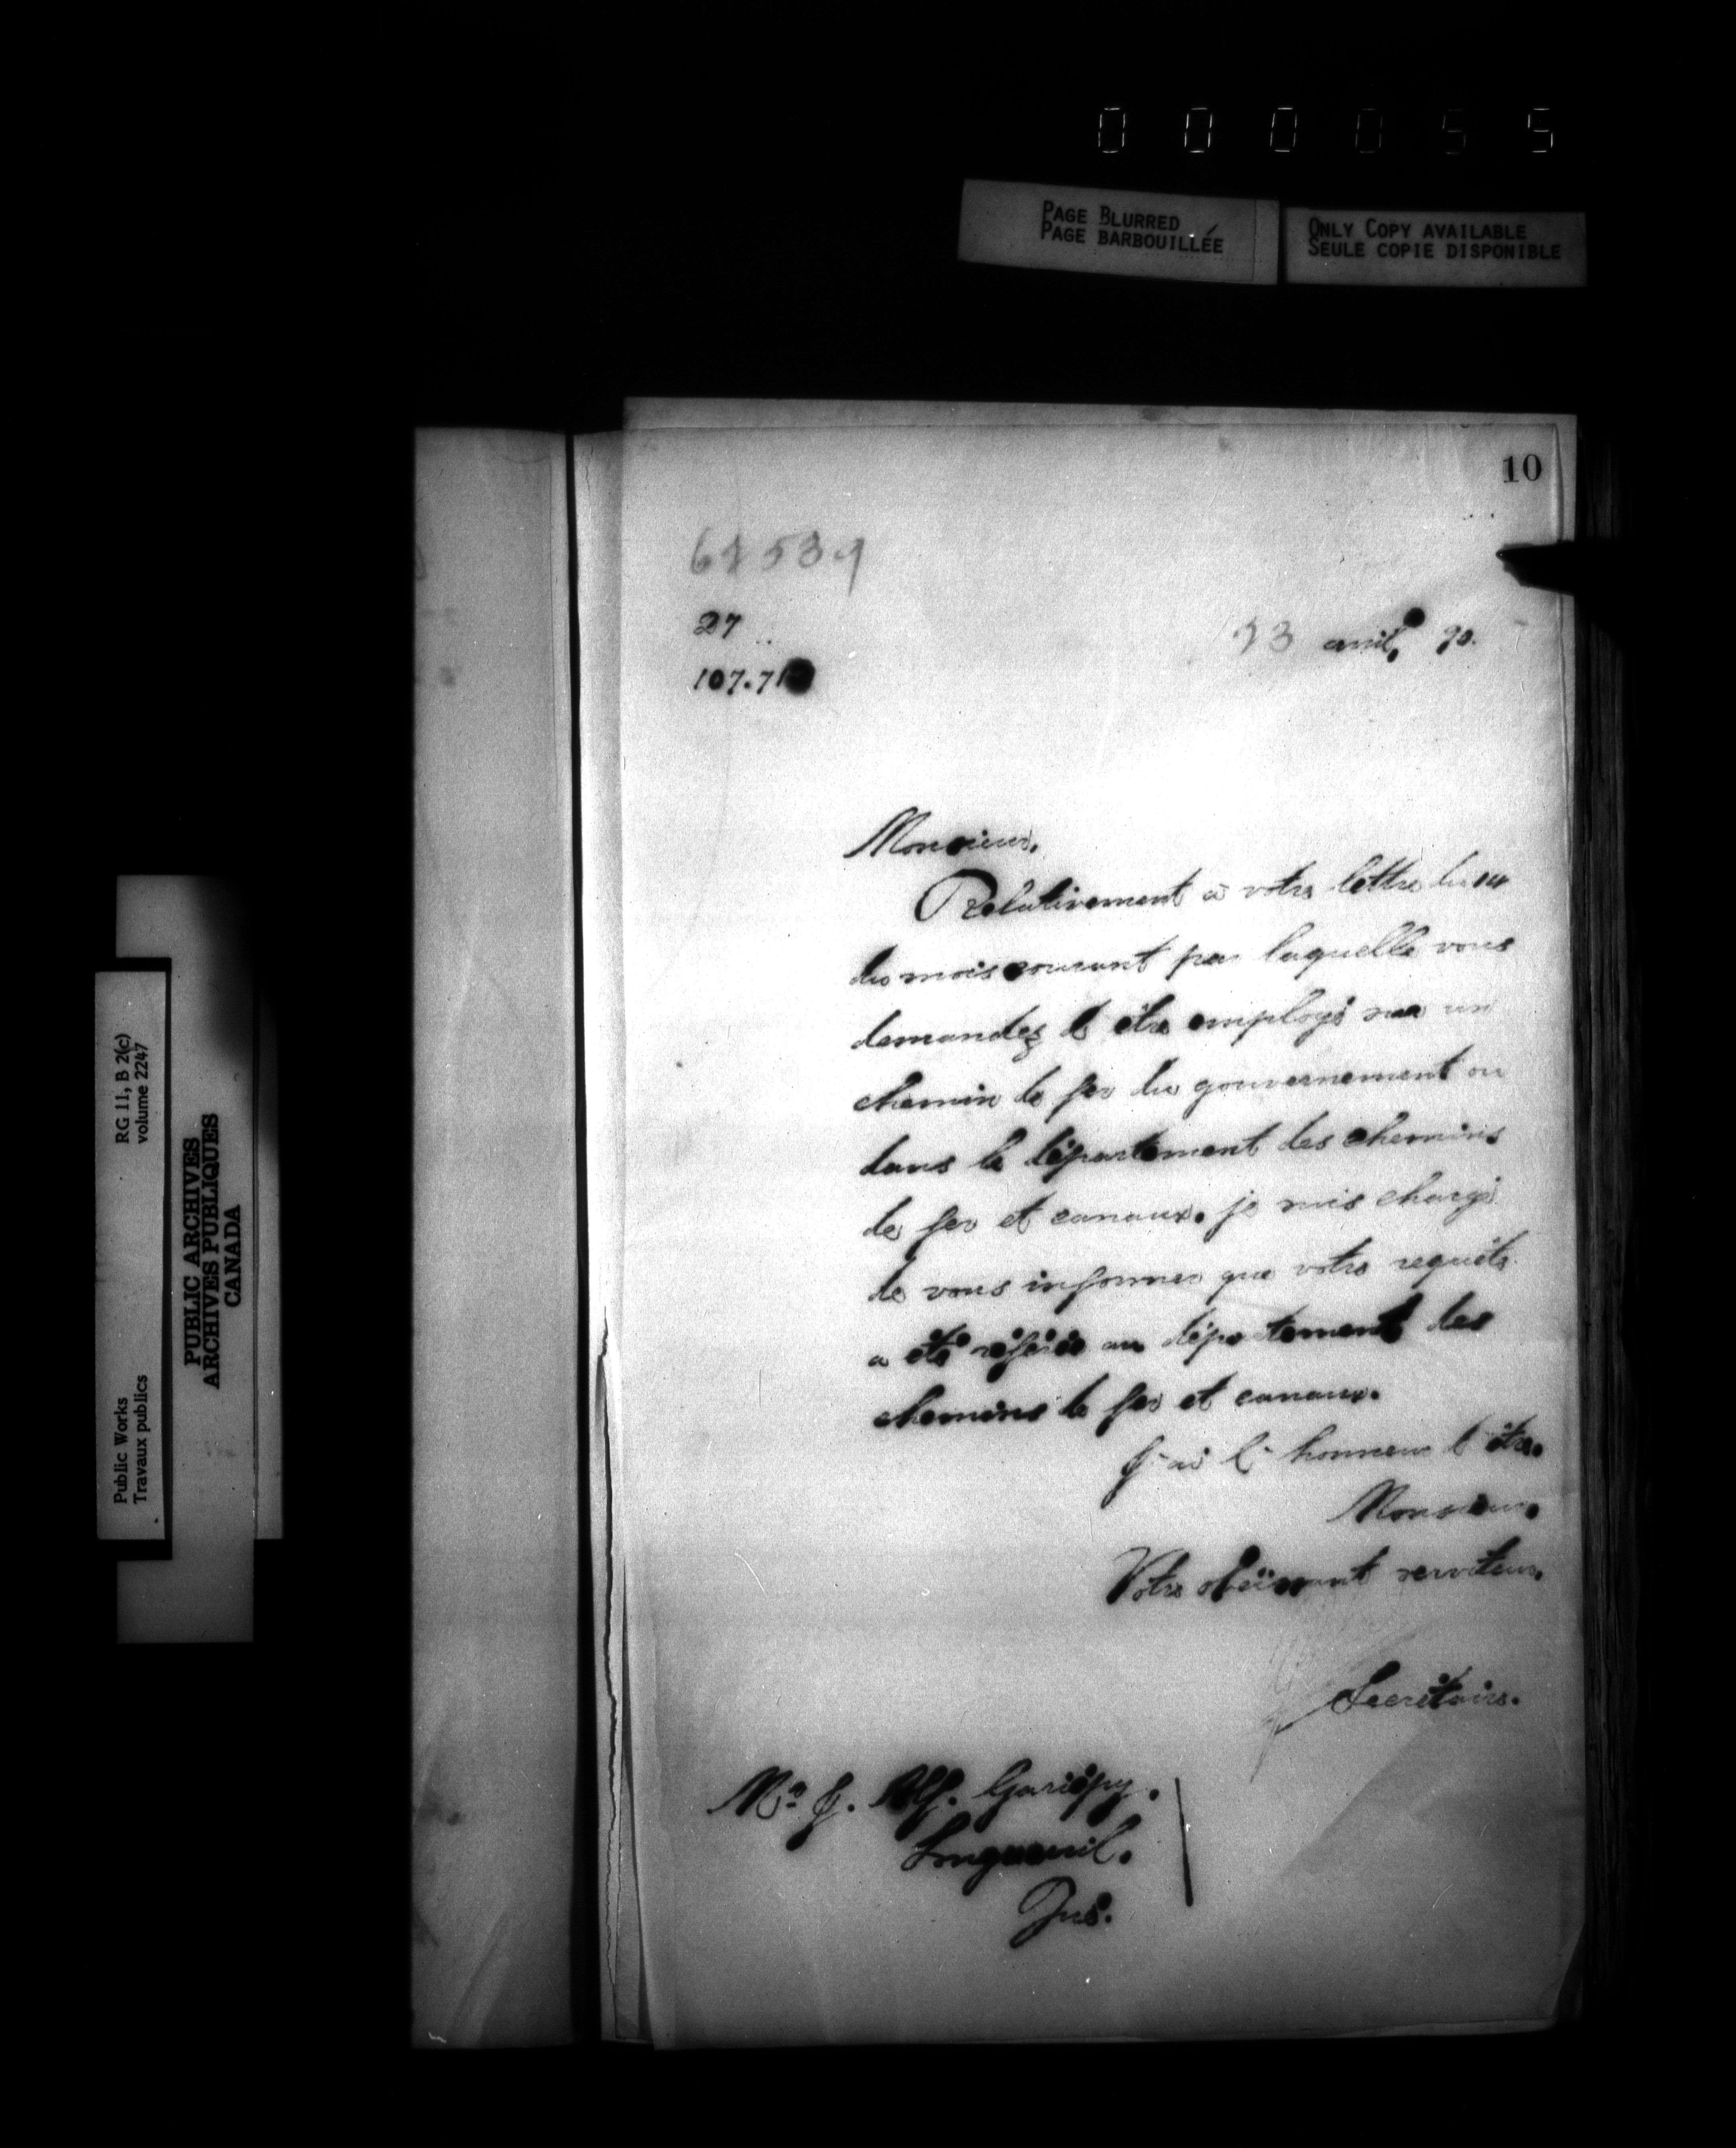 0 0 0 0 5 5
PAGE BLURRED
PAGE BARBOUILLÉE
ONLY COPY AVAILABLE
SEULE COPIE DISPONIBLE
10
27
107.71
avril, 90.
Monsieur,
Relativement à votre lettre du 14
du mois courant par laquelle vous
demandez d'être employé sur un
chemin de fer du gouvernement ou
dans le département des chemins
de fer et canaux, je suis chargé
de vous informer que votre requête
a été référée au département des
chemins de fer et canaux.
J'ai l'honneur d'être,
Monsieur,
Votre obéissant serviteur,
Secrétaire.
Mr J. Alf. Gariépy,
Longueuil,
RG 11, B 2(c)
volume 2247
Public Works
Travaux publics
PUBLIC ARCHIVES
ARCHIVES PUBLIQUES
CANADA